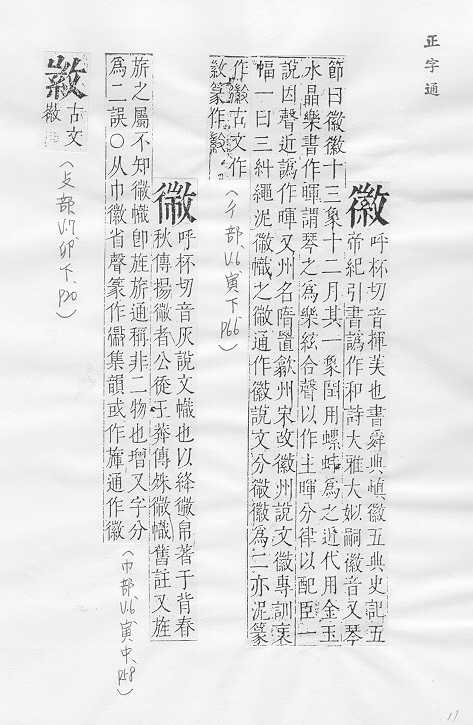 正字通
徽
呼杯切音揮美也書舜典慎徽五典史記五
帝紀引書譌作和詩大雅大姒嗣徽音又琴
節曰徽徽十三象十二月其一象閏用螺蚌為之近代用金玉
水晶樂書作暉謂琴之為樂絃合聲以作主暉分律以配臣一
說因聲近譌作暉又州名隋置歙州宋改徽州說文徽專訓衺
幅一曰三糾繩泥徽幟之徽通作徽說文分徽徽為二亦泥篆
作 古文作
篆作
(彳部、V.6寅下、P.66)
呼杯切音灰說文幟也以絳徽帛著于背春
秋傳揚徽者公徒王莽傳殊徽幟舊註又旌
旂之屬不知徽幟卽旌旂通稱非二物也增又字分
為二誤○从巾徽省聲篆作 集韻或作 通作徽
(巾部、V.6寅中、P.58)
古文
(攴部、V.7卯下、P.20)
17